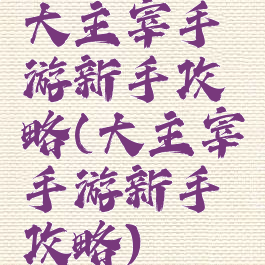 大主宰手
游新手攻
略(大主宰
手游新手
攻略)